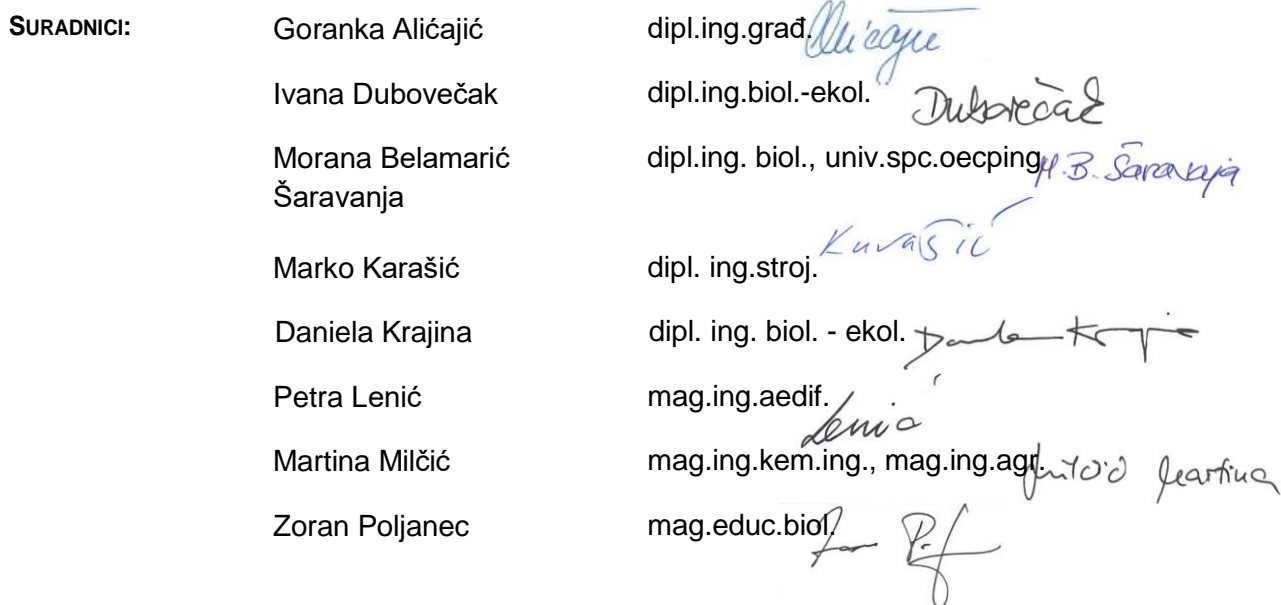 SURADNICI: Goranka Alićajić dipl.ing.građ. Alićajić
Ivana Dubovečak dipl.ing.biol.-ekol. Dubovečak
Morana Belamarić dipl.ing. biol., univ.spc.oecping M.B. Šaravanja
Šaravanja
Marko Karašić dipl. ing.stroj. Karašić
Daniela Krajina dipl. ing. biol. - ekol.
Petra Lenić mag.ing.aedif. Lenić
Martina Milčić mag.ing.kem.ing., mag.ing.agr. Milčić Martina
Zoran Poljanec mag.educ.biol.